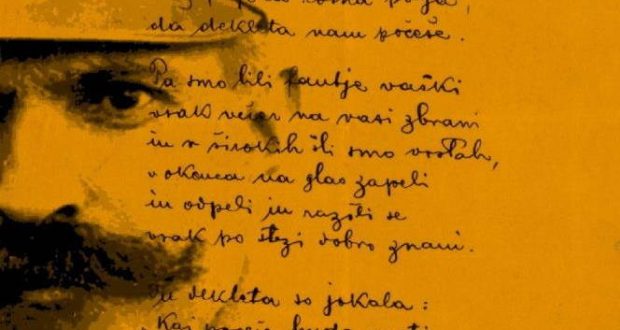 rosna polja,
da dekleta nam počeše.
Pa smo bili fantje vaški
vsak večer na vasi zbrani
in v širokih šli smo vrstah,
v okenca na glas zapeli
in odpeli in razšli se
vsak po stezi dobro znani.
In dekleta so jokala:
"Kaj poreče huda mati